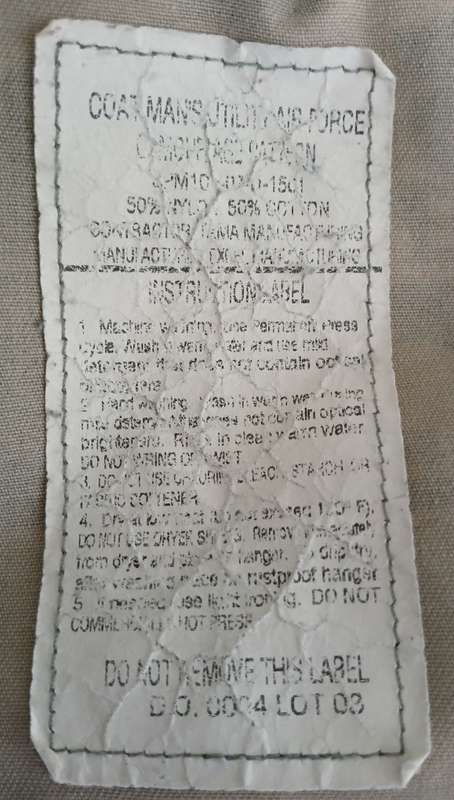 COAT MAN'S UTILITY AIR FORCE
CAMOUFLAGE PATTERN
50% NYLON 50% COTTON
CONTRACTOR TAMA MANUFACTURING
MANUFACTURER EXCEL MANUFACTURING
INSTRUCTION LABEL
1. Machine washing. Use Permanent Press
cycle. Wash in warm water and use mild
detergent that does not contain optical
brighteners
2. Hand washing. Wash in warm water using
mild detergent that does not contain optical
brighteners. Rinse in clean warm water.
DO NOT WRING OR TWIST
3. DO NOT USE CHLORINE BLEACH, STARCH OR
FABRIC SOFTENER
4. Dry at low heat (do not exceed F).
DO NOT USE DRYER SHEETS. Remove immediately
from dryer and place on hanger. To drip dry,
after washing place on rustproof hanger
5. If needed use light ironing. DO NOT
COMMERCIALLY HOT PRESS
DO NOT REMOVE THIS LABEL
D.O. 0004 LOT 03